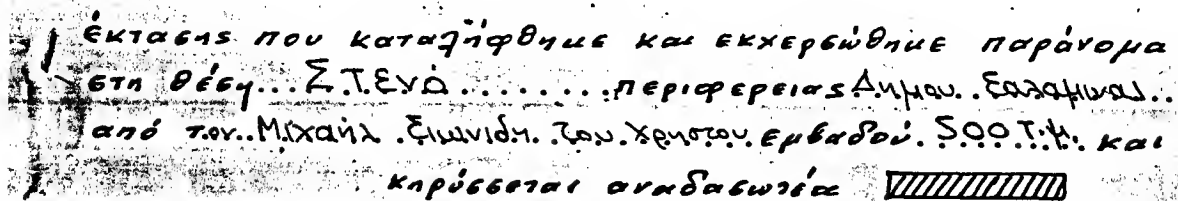 έκτασης που καταλήφθηκε και εκχερσώθηκε παράνομα
στη θέση...ΣΤΕΝΟ........περιφερειας Δήμου..Σαλαμίνας..
από τον..Μιχαήλ.Σιμωνίδη.του.Χρηστου.εμβαδού.500 Τ.μ. και
κηρύσσεται αναδασωτέα